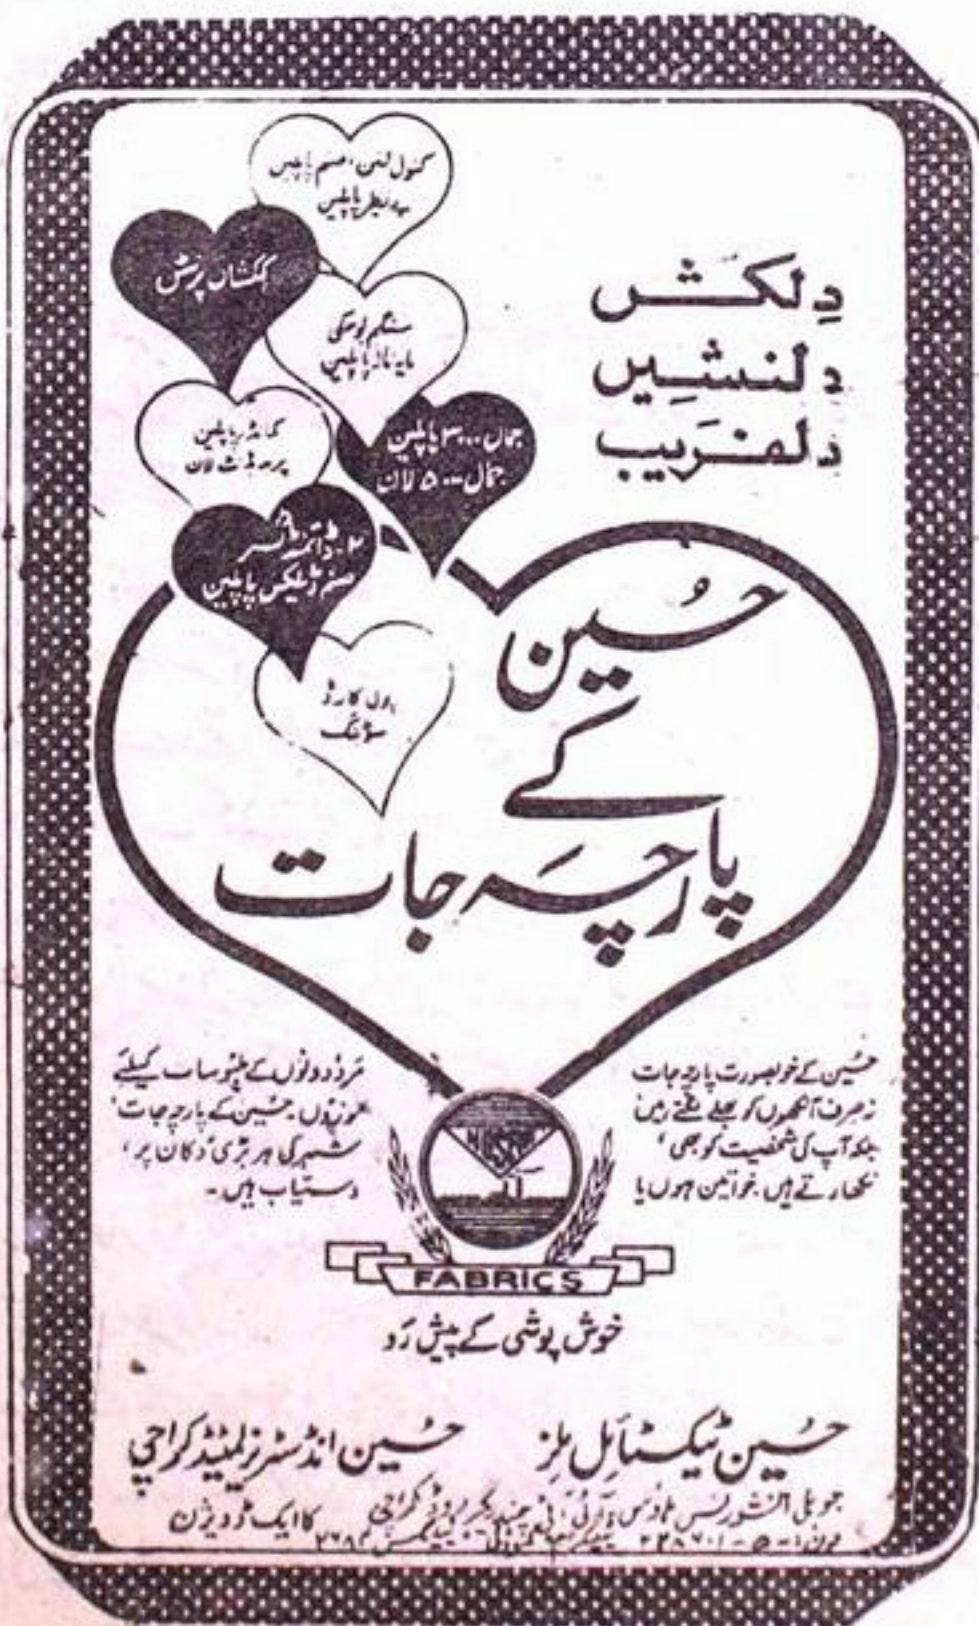 دِلکش
دِلنشِیں
دِلفَریب
صنم پاپلین
بے نظیر پاپلین
کہکشاں پرنٹ
سنگم
مایہ ناز پاپلین
کمانڈر پاپلین
پرنٹڈ لان
جمال ۳۰۰۰ پاپلین
جمال ۵۰۰ لان
صنم ڈیلکس پاپلین
سوٹنگ
حُسین
کے
پارچہ جات
حُسین کے خوبصورت پارچہ جات
نہ صرف آنکھوں کو بھلے لگتے ہیں
بلکہ آپ کی شخصیت کو بھی،
نکھارتے ہیں۔ خواتین ہوں یا
مَرد دونوں کے ملبوسات کیلئے
موزوں۔ حُسین کے پارچہ جات،
شہر کی ہر بڑی دُکان پر،
دستیاب ہیں۔
HUSEIN
FABRICS
خوش پوشی کے پیش رَو
حُسین ٹیکسٹائل ملز
حُسین انڈسٹریز لمیٹڈ کراچی
کا ایک ڈویژن
جوبلی انشورنس ہاؤس آئی آئی چندریگر روڈ کراچی